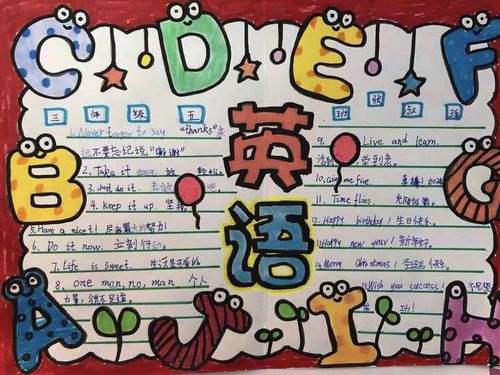 C D E F
B
G
A J I H
英
语
三 年 级 五
班 张
1. Never forget to say "thanks"
不要忘记说"谢谢"
2. Take it easy. 放轻松
3. Just do it.
4. Keep it up. 坚持
5. Have a nice 努力
6. Do it now. 立刻行动
7. Life is sweet. 生活是
8. one man, no, man 个人
力量,微不足道。
9. Live and learn.
学到老。
10. Give me five.
11. Time flies 光阴似箭。
12. Happy birthday! 生日快乐。
13. Happy new year! 新年好。
14. Merry Christmas! 圣诞快乐。
15. Wish you success! 祝你
功!